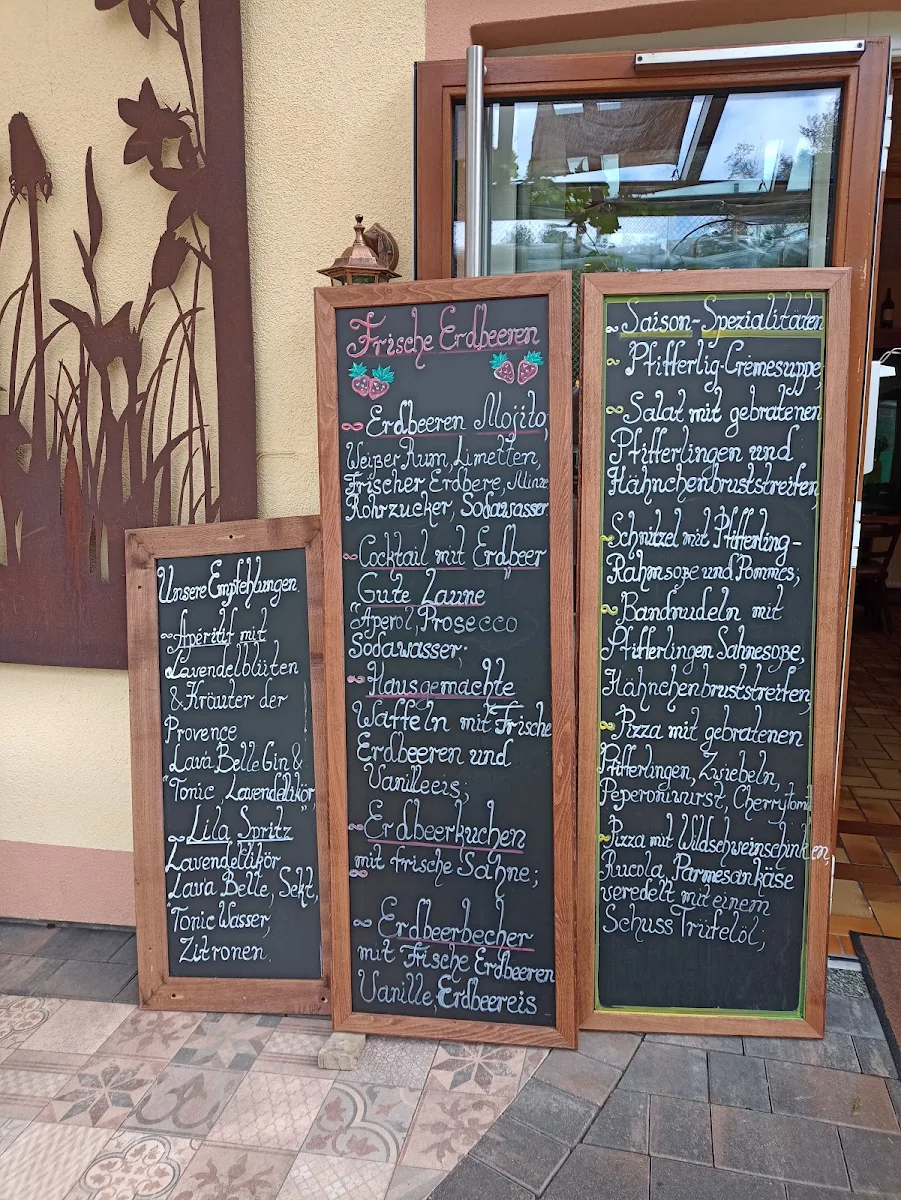 Unsere Empfehlungen.
~Apéritif mit
Lavendelblüten
& Kräuter der
Provence
Lava Belle Gin &
"Tonic, Lavendellikör"
~Lila Spritz"
Lavendellikör
Lava Belle, Sekt,
"Tonic Wasser,
Zitronen.
Frische Erdbeeren
~Erdbeeren Mojito,
Weißer Rum, Limetten,
Frischer Erdbere, Minze
Rohrzucker, Sodawasser
~Cocktail mit Erdbeer
Gute Laune"
"Aperol, Prosecco
Sodawasser;
~Hausgemachte
Waffeln mit Frische
Erdbeeren und
Vanilleeis;
~Erdbeerkuchen
mit frische Sahne;
~Erdbeerbecher
mit Frische Erdbeeren
Vanille, Erdbeereis
~Saison-Spezialitäten
~Pfifferlig-Cremesuppe,
~Salat mit gebratenen
Pfifferlingen und
Hähnchenbruststreifen,
~Schnitzel mit Pfifferling-
Rahmsoße und Pommes;
~Bandnudeln mit
Pfifferlingen Sahnesoße,
Hähnchenbruststreifen,
~Pizza mit gebratenen
Pfifferlingen, Zwiebeln,
Peperoniwurst, Cherrytom
~Pizza mit Wildschweinschinken,
Rucola, Parmesankäse
veredelt mit einem
Schuss Trüfelöl;